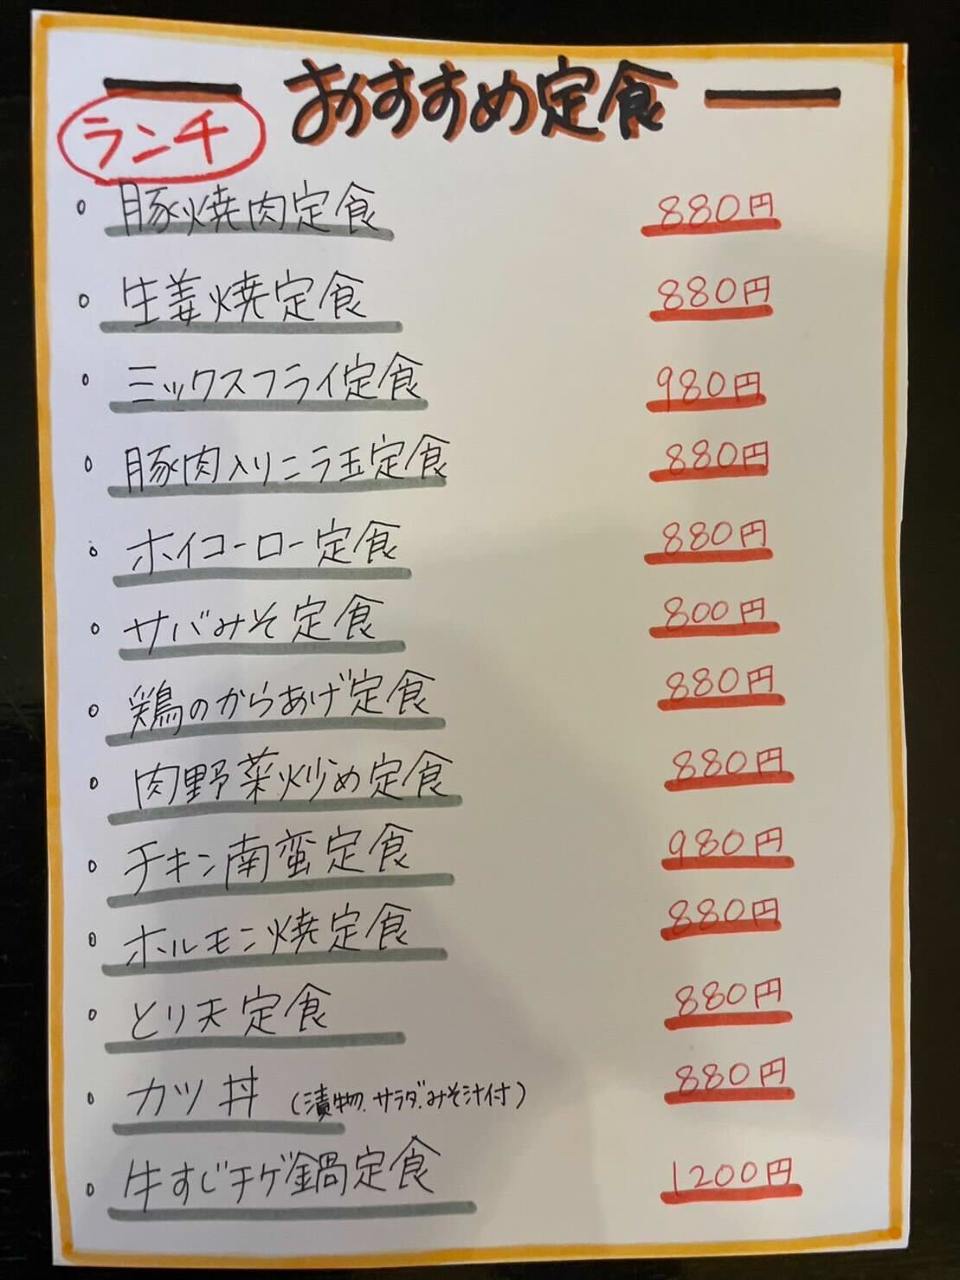 おすすめ定食
ランチ
豚焼肉定食 880円
生姜焼定食 880円
ミックスフライ定食 980円
豚肉入りニラ玉定食 880円
ホイコーロー定食 880円
サバみそ定食 800円
鶏のからあげ定食 880円
肉野菜炒め定食 880円
チキン南蛮定食 980円
ホルモン焼定食 880円
とり天定食 880円
カツ丼 (漬物、サラダ、みそ汁付) 880円
牛すじチゲ鍋定食 1200円